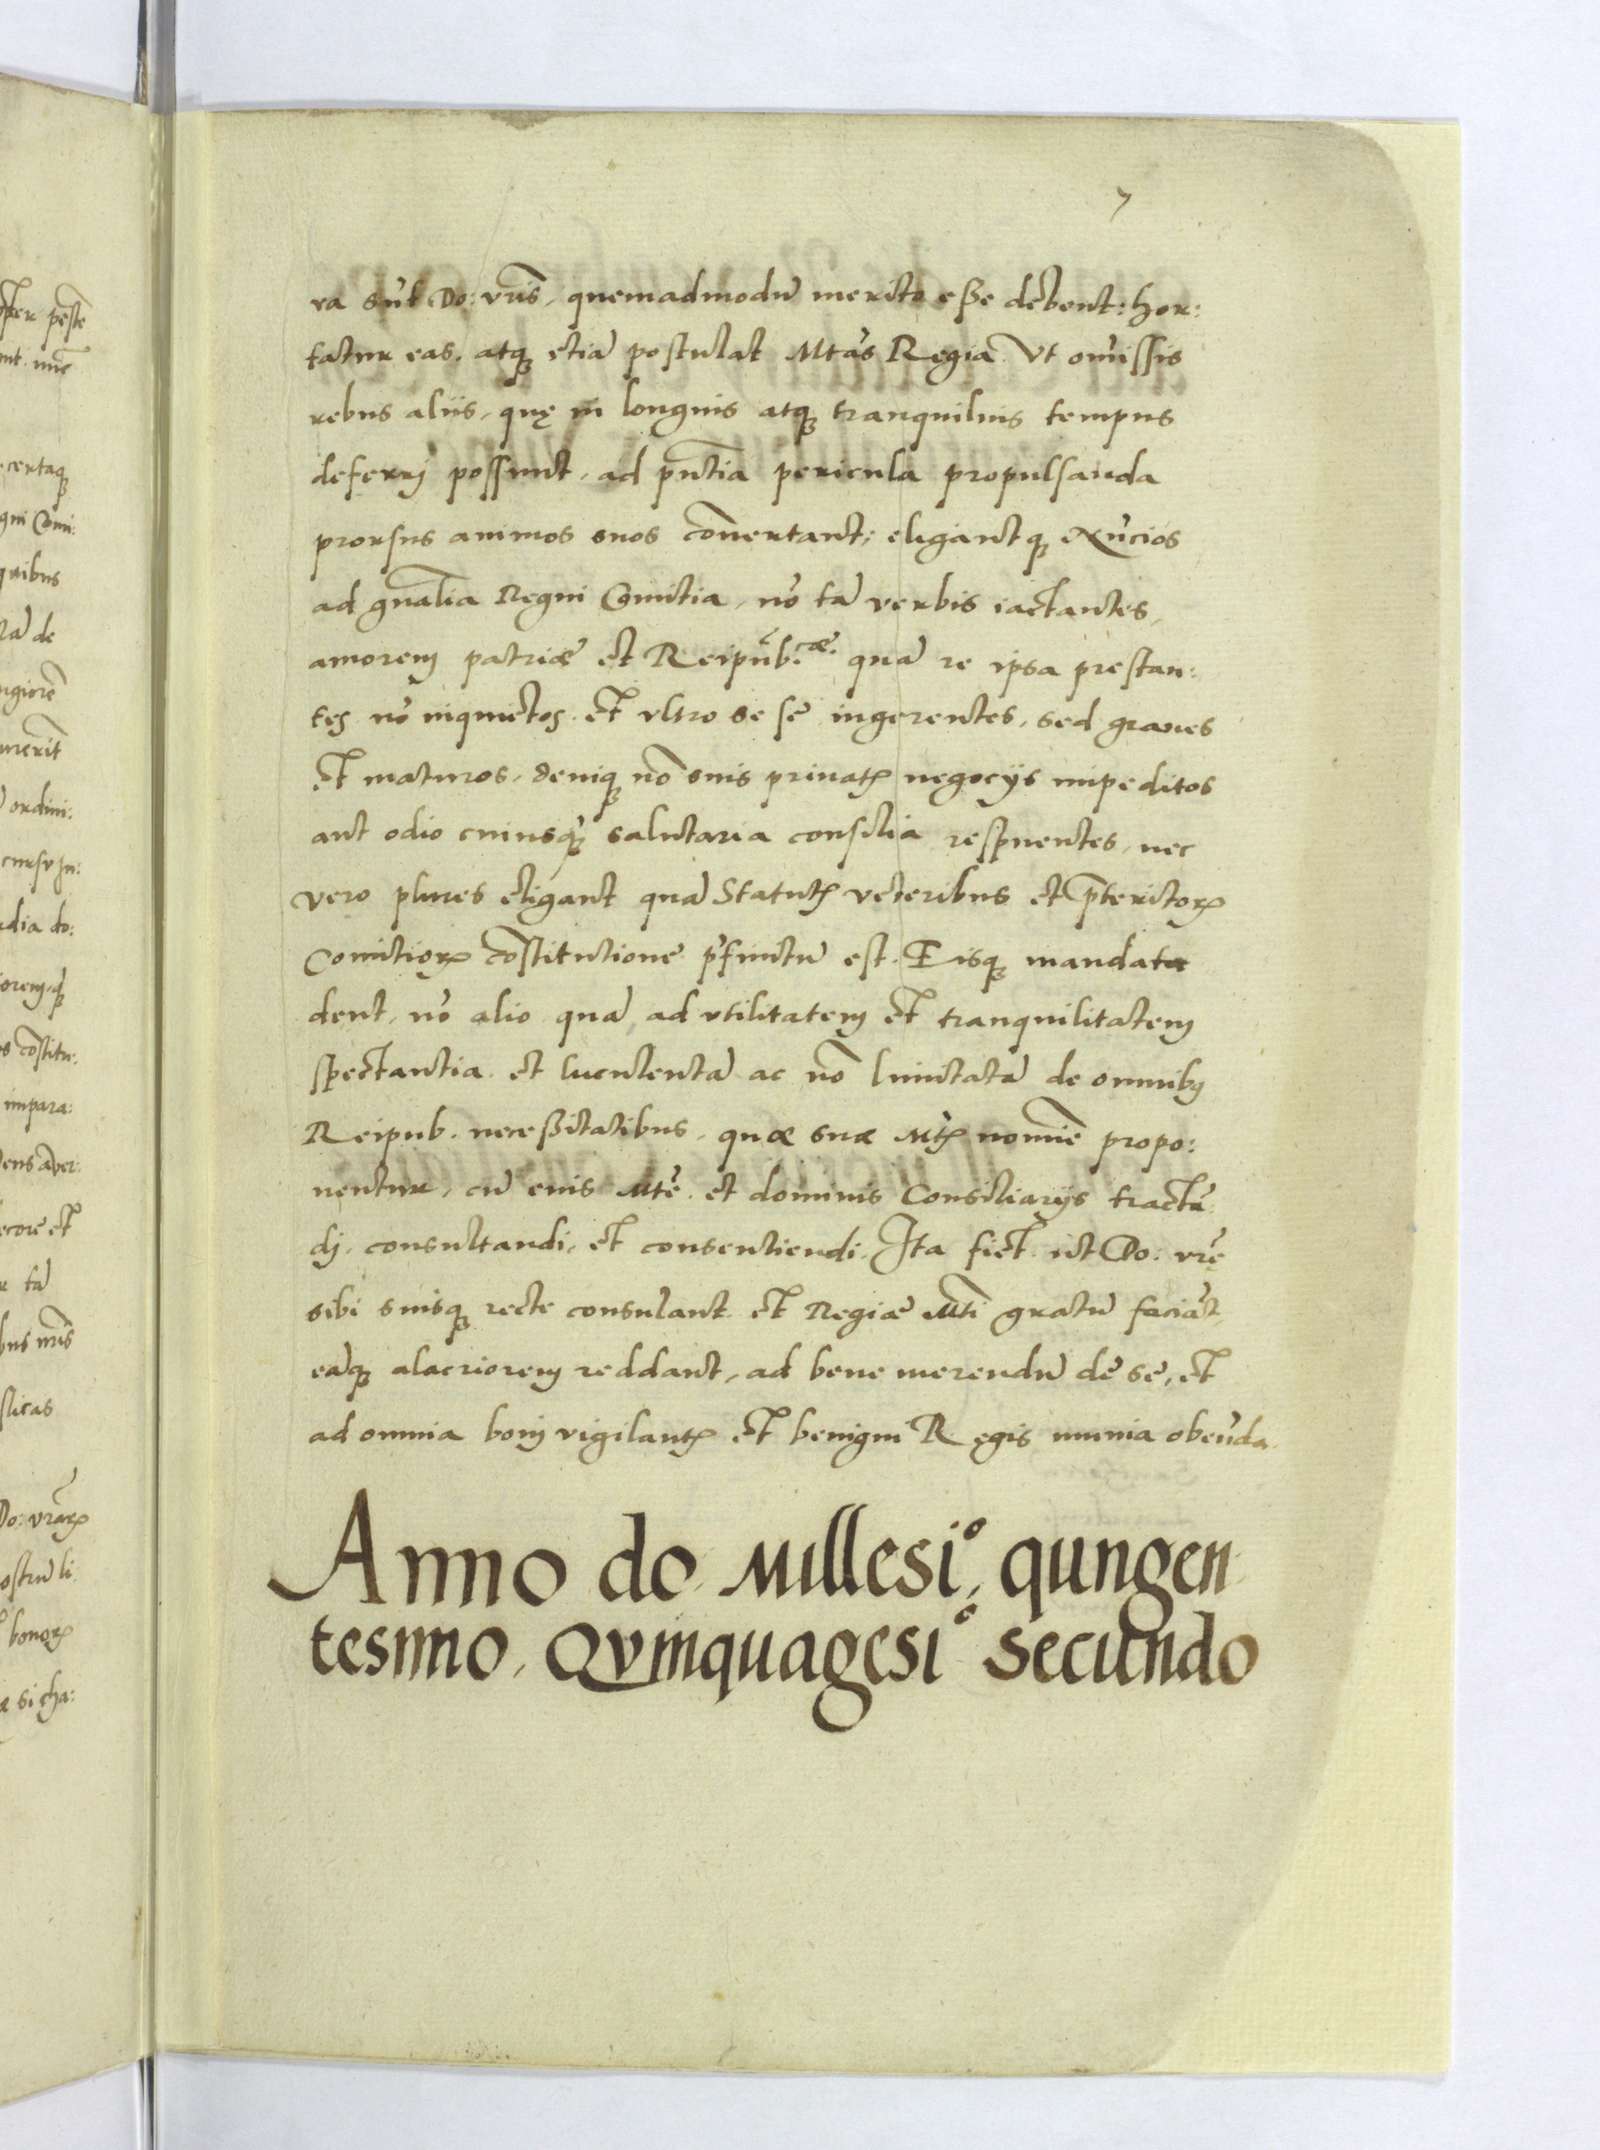 7
ra sūt Do: vr̄is, quemadmodū merito eße debent: hor:
tatur eas, atq3 etiā postulat Mtās Regia Vt omissis
rebus aliis, quę in longius atq3 tranquilius tempus
deferrj possunt, ad pn̄tia pericula propulsanda
prorsus animos suos cōuertant; eligantq3 Nūcios
ad gn̄alia Regni Comitia, nō tā verbis iactantes,
amorem patriæ et Reipub:cæ: quā re ipsa prestan:
tes nō inquietos et vltro se se ingerentes, sed graues
et maturos, deniq3 nō suis priuatꝭ negocijs impeditos
aut odio cuiusq3 salutaria consilia respuentes, nec
vero plures eligant quā Statutꝭ veteribus et p̄teritoꝝ
Comitioꝝ cōstitutione p̄finitū est. Eisq3 mandata
dent, nō alio quā ad vtilitatem et tranquilitatem
spectantia et luculentā ac nō limitatā de omnibꝰ
Reipub. neceßitatibus, quæ suæ Mtꝭ nomīe propo:
nentur, cū euis Mtē et dominis Consiliarijs tractā
dj, consultandi, et consentiendi. Ita fiet ut Do: vrē
sibi suisq3 recte consulant et Regiæ Mti gratū faciāt,
eāq3 alacriorem reddant, ad bene merendū de se, et
ad omnia bonj vigilantꝭ et benigni Regis munia obeūda
Anno do Millesi°, qungen
tesimo, Qvinquagesi° secundo
pēste
certaq3
quibus
rā de
ordini:
cursu In:
impara:
tā
Do: vrāꝝ
bonoꝝ